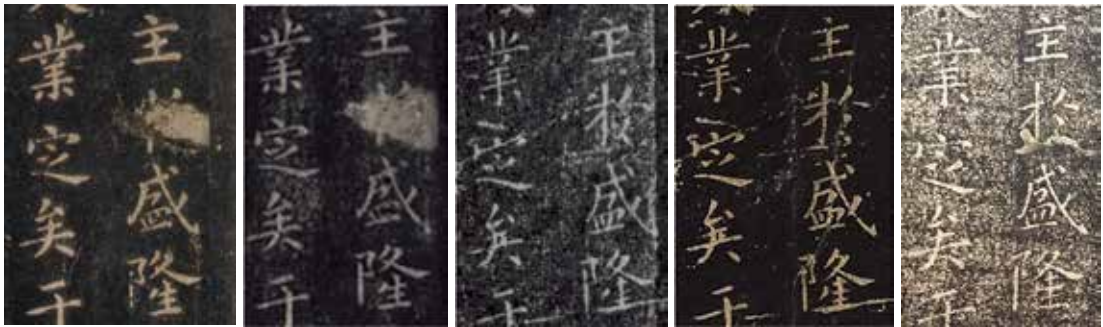 主盛隆
業定矣于
主盛隆
業定矣于
主於盛隆
業定矣于
主於盛隆
業定矣于
主於盛隆
業定矣于